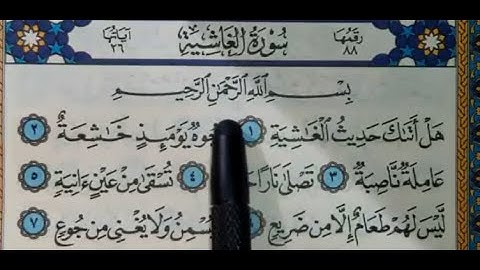 رقمها ٨٨ سُورَةُ الغَاشِيَةِ آياتها ٢٦
بِسْمِ ٱللَّهِ ٱلرَّحْمَٰنِ ٱلرَّحِيمِ
هَلْ أَتَىٰكَ حَدِيثُ ٱلْغَٰشِيَةِ ١ يَوْمَئِذٍ خَٰشِعَةٌ ٢
عَامِلَةٌ نَّاصِبَةٌ ٣ تَصْلَىٰ نَارًا ٤ تُسْقَىٰ مِنْ عَيْنٍ ءَانِيَةٍ ٥
لَّيْسَ لَهُمْ طَعَامٌ إِلَّا مِن ضَرِيعٍ وَلَا يُغْنِى مِن جُوعٍ ٧